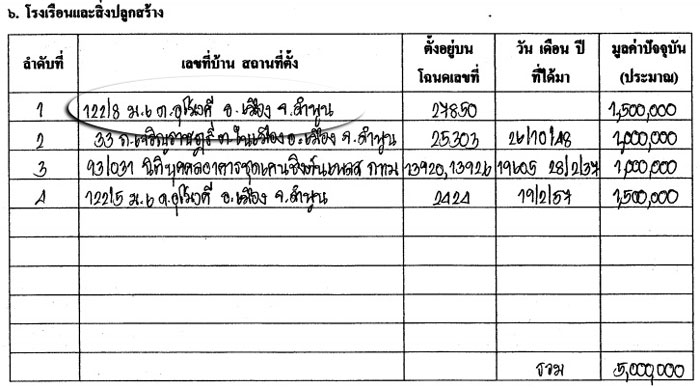 ๖. โรงเรือนและสิ่งปลูกสร้าง
ลำดับที่ เลขที่บ้าน สถานที่ตั้ง ตั้งอยู่บน โฉนดเลขที่ วัน เดือน ปี ที่ได้มา มูลค่าปัจจุบัน (ประมาณ)
1 122/8 ม.๖ ต.อุโมงค์ อ.เมือง จ.ลำพูน 27850 1,500,000
2 33 ถ.เจริญราษฎร์ ต.ในเมือง อ.เมือง จ.ลำพูน 25303 26/10/48 1,000,000
3 93/031 นิติบุคคลอาคารชุด 13920, 13926 19605 28/2/37 1,000,000
4 122/5 ม.๖ ต.อุโมงค์ อ.เมือง จ.ลำพูน 2424 19/2/57 1,500,000
รวม 5,000,000